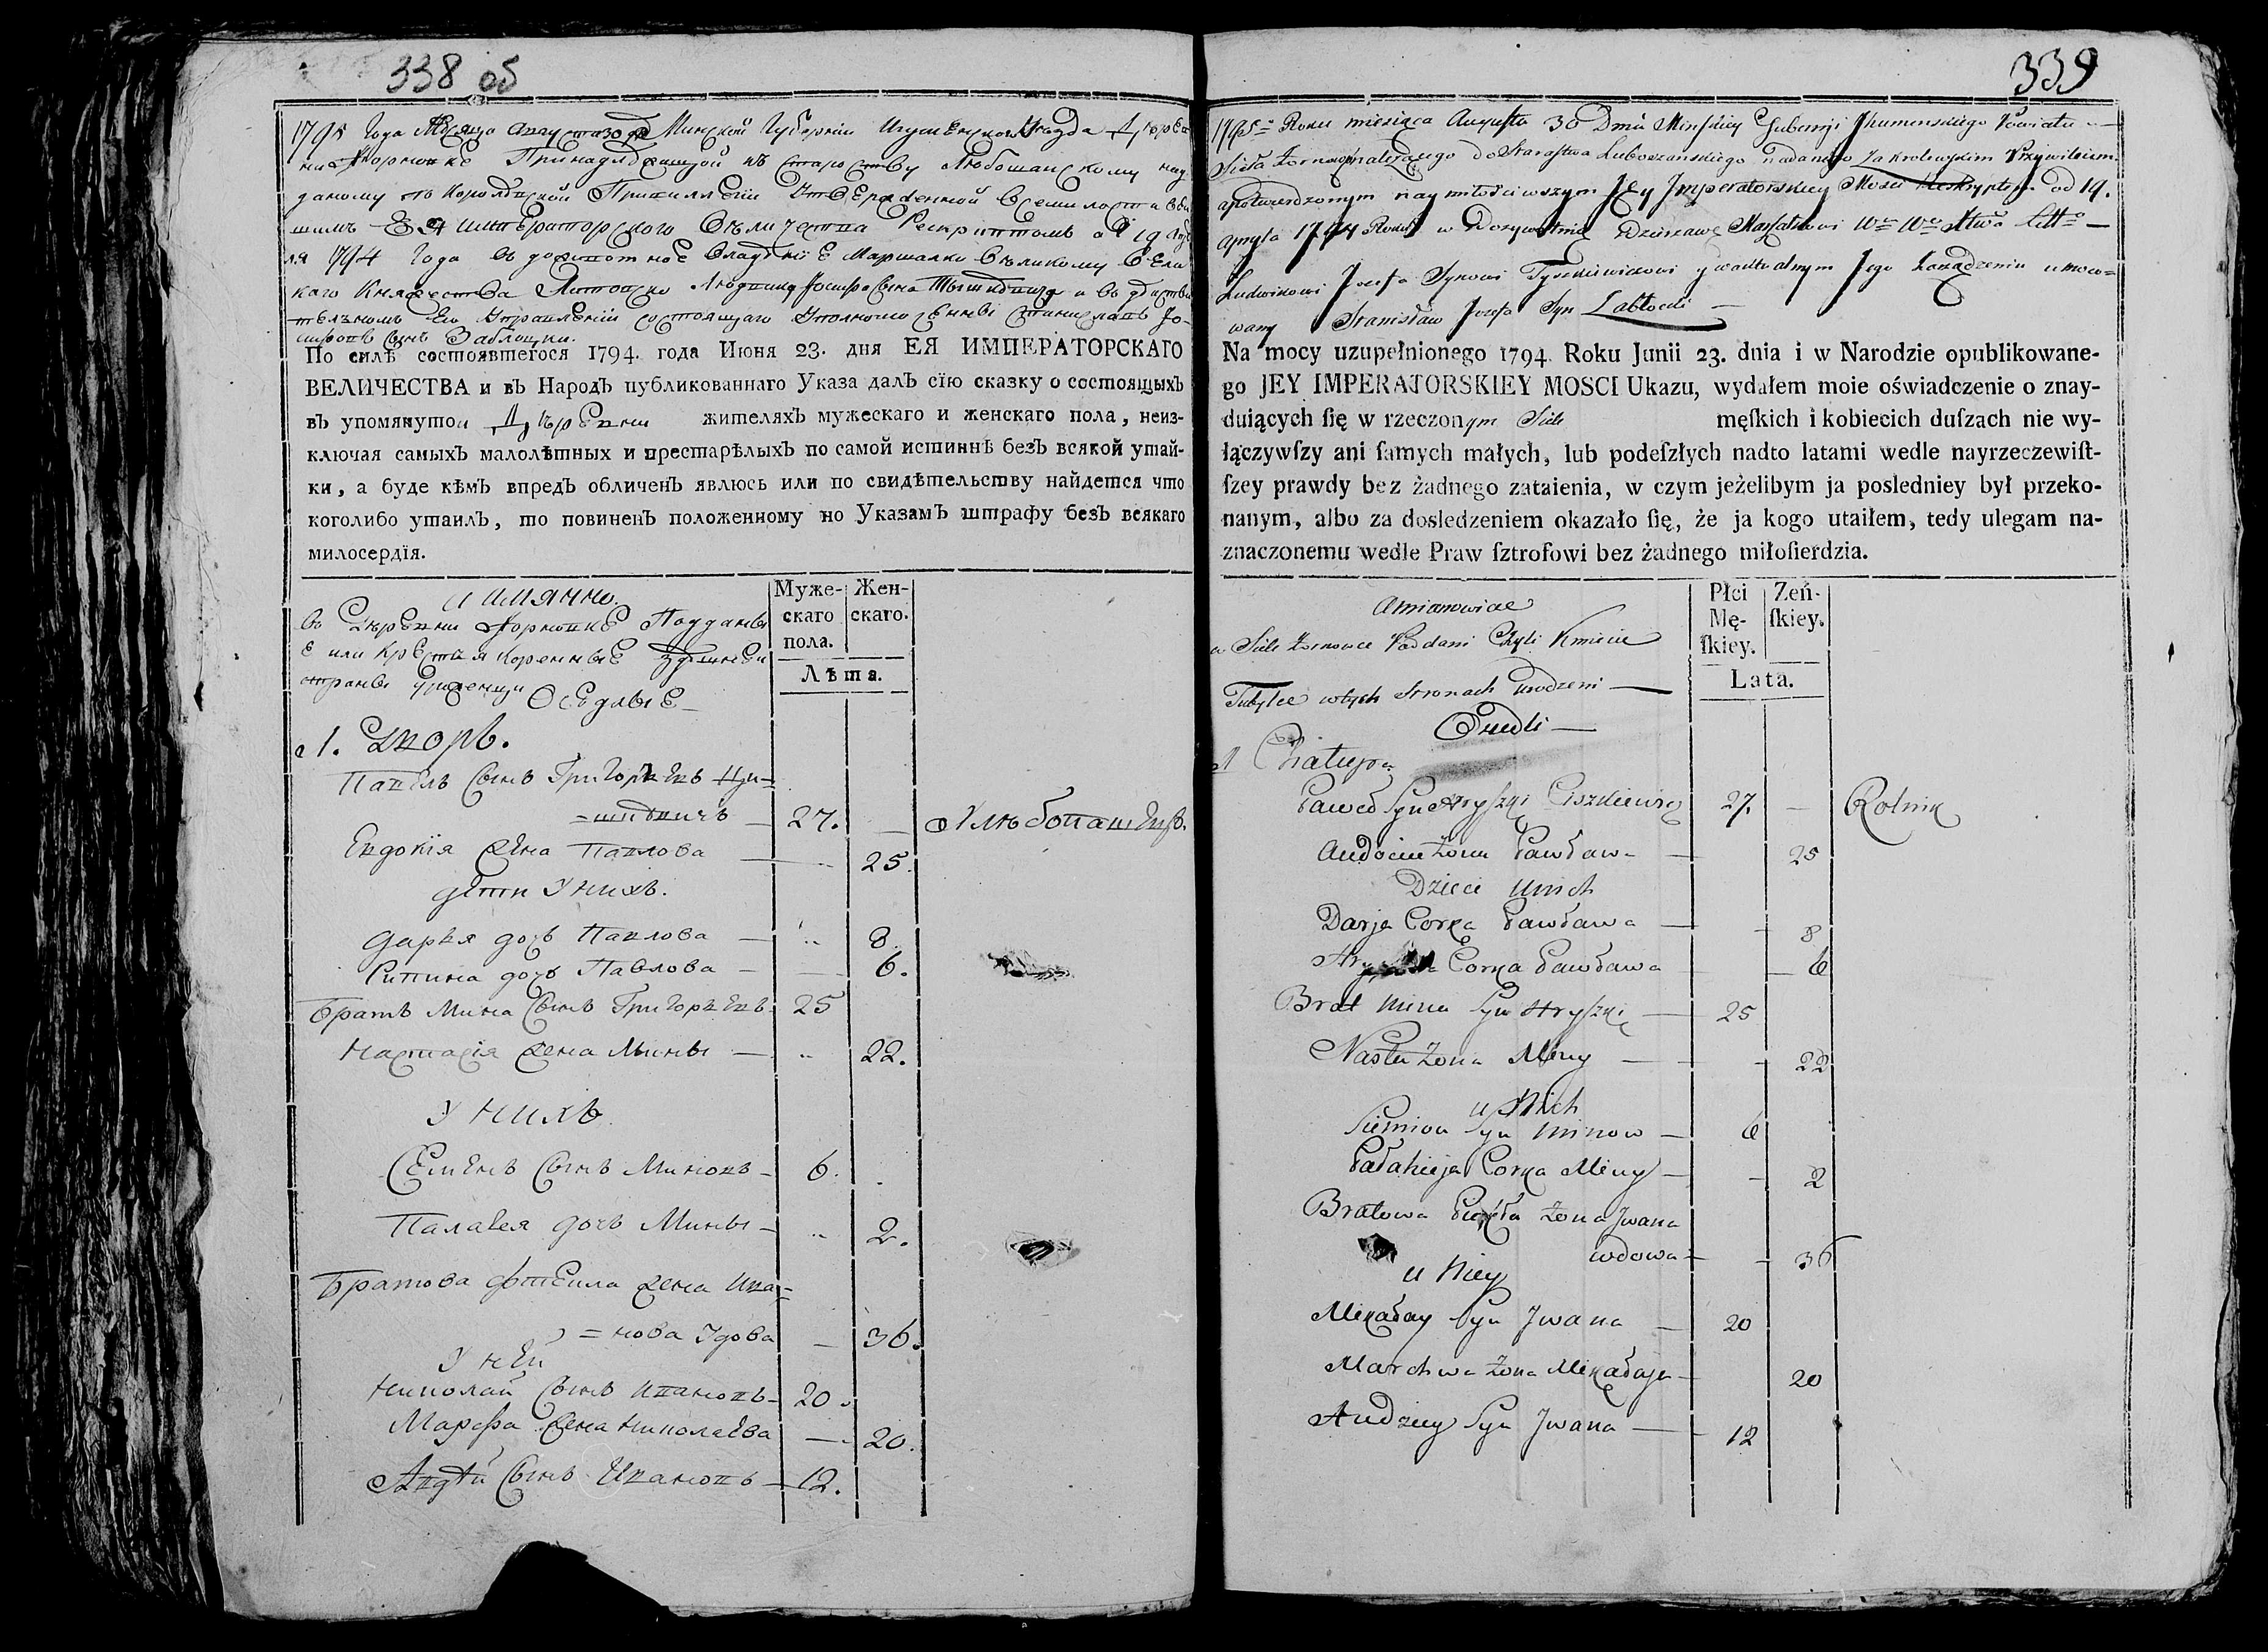 338 об
1795 Года Месяца Августа 30 д Минской Губернии Игуменского Уезда Дерев
ни Жорновке Принадлежащой къ старосту Любошанскому на
даному Королевской Привиллегии Утвержденной всемилостивей
шимъ ЕЯ императорского Величества Рескриптомъ от 19 Апре
ля 794 Года въ доживотное владение Маршалки Великому Вели
каго Княжества Литовско Людвику Іосифо сына Тышкевича и въ действи
тельномъ Его Управлении состоящаго Уполномоченны Станиславъ Іо
сифовъ сынъ Заблоцки.
По силѣ состоявшегося 1794. года Июня 23. дня ЕЯ ИМПЕРАТОРСКАГО
ВЕЛИЧЕСТВА и въ Народъ публикованнаго Указа далъ сїю сказку о состоящыхъ
въ упомянутои Деревни жителяхъ мужескаго и женскаго пола, неиз-
ключая самыхъ малолѣтныхъ и престарѣлыхъ по самой истиннѣ безъ всякой утай-
ки, а буде кѣмъ впредъ обличенъ явлюсь или по свидѣтельству найдется что
коголибо утаилъ, то повиненъ положенному по Указамъ штрафу безъ всякаго
милосердїя.
и имянно.
въ Деревни Жорновке Подданы
е или Крестя Коренные здешней
страны Уроженци Оседлые
Муже-
скаго
пола.
Жен-
скаго.
Лѣта.
1. Дворъ.
Павелъ сынъ Григорьевъ Ци=
=шкевичъ — 27. —
Евдокія жена Павлова — 25.
дети У нихъ.
Дарья дочь Павлова — 8.
дочь Павлова — 6.
Братъ Мина сынъ Григорьевъ 25
Настасія жена Мины — 22.
У нихъ
Семенъ сынъ Миновъ — 6.
Палагея дочь Мины — 2.
Братова жена Ива=
=нова Удова — 36.
У ней
Николай сынъ Ивановъ — 20.
Марфа жена Николаева — 20.
Андей сынъ Ивановъ — 12.
339
1795 Roku miesiąca Augusta 30 Dnia Minskiey Gubernji Jhumenskiego Powiatu
Sioła należącego do Starostwa Luboszanskiego nadanego za krolewskim Przywileiem
apotwierdzonym naymiłościwszym Jey Jmperatorskiey Mosci Reskryptem od 19.
apryla 1794 Roku w Dożywotnią Dzierżawę Marszałkowi W. W. Xtwa Litt
Ludwikowi Jozefa Synowi Tyszkiewiczowi y waktualnym Jego Zarządzeniu umoco=
wany Stanisław Jozefa Syn Zabłocki —
Na mocy uzupełnionego 1794. Roku Junii 23. dnia i w Narodzie opublikowane-
go JEY IMPERATORSKIEY MOSCI Ukazu, wydałem moie oświadczenie o znay-
duiących ſię w rzeczonym Siele męſkich i kobiecich duſzach nie wy-
łączywſzy ani ſamych małych, lub podeſzłych nadto latami wedle nayrzeczewiſt-
ſzey prawdy bez żadnego zataienia, w czym jeżelibym ja posledniey był przeko-
nanym, albo za dosledzeniem okazało ſię, że ja kogo utaiłem, tedy ulegam na-
znaczonemu wedle Praw ſztrofowi bez żadnego miłoſierdzia.
Amianowicie
w Siele Zornowce Poddani Czyli Kmiecie
Tutylce wtych Stronach Urodzeni —
Osiedli —
Płci
Mę-
ſkiey.
Żeń-
ſkiey.
Lata.
1 Chatupa
Paweł Syn Hryszki Ciszkiewicz 27. — Rolnik
Audocia Żona Pawława — 25
Dzieci Unich
Darja Corka Pawława — 8
Corka Pawława — 6
Brat Mina Syn Hryszki — 25
Nasta Żona Miny — 22
u Nich
Siemion Syn Minow — 6
Pałahieja Corka Miny — 2
Bratowa Żona Jwana
wdowa — 36
u Niey
Mikałay Syn Jwana — 20
Marchwa Żona Mikałaja — 20
Audziey Syn Jwana — 12